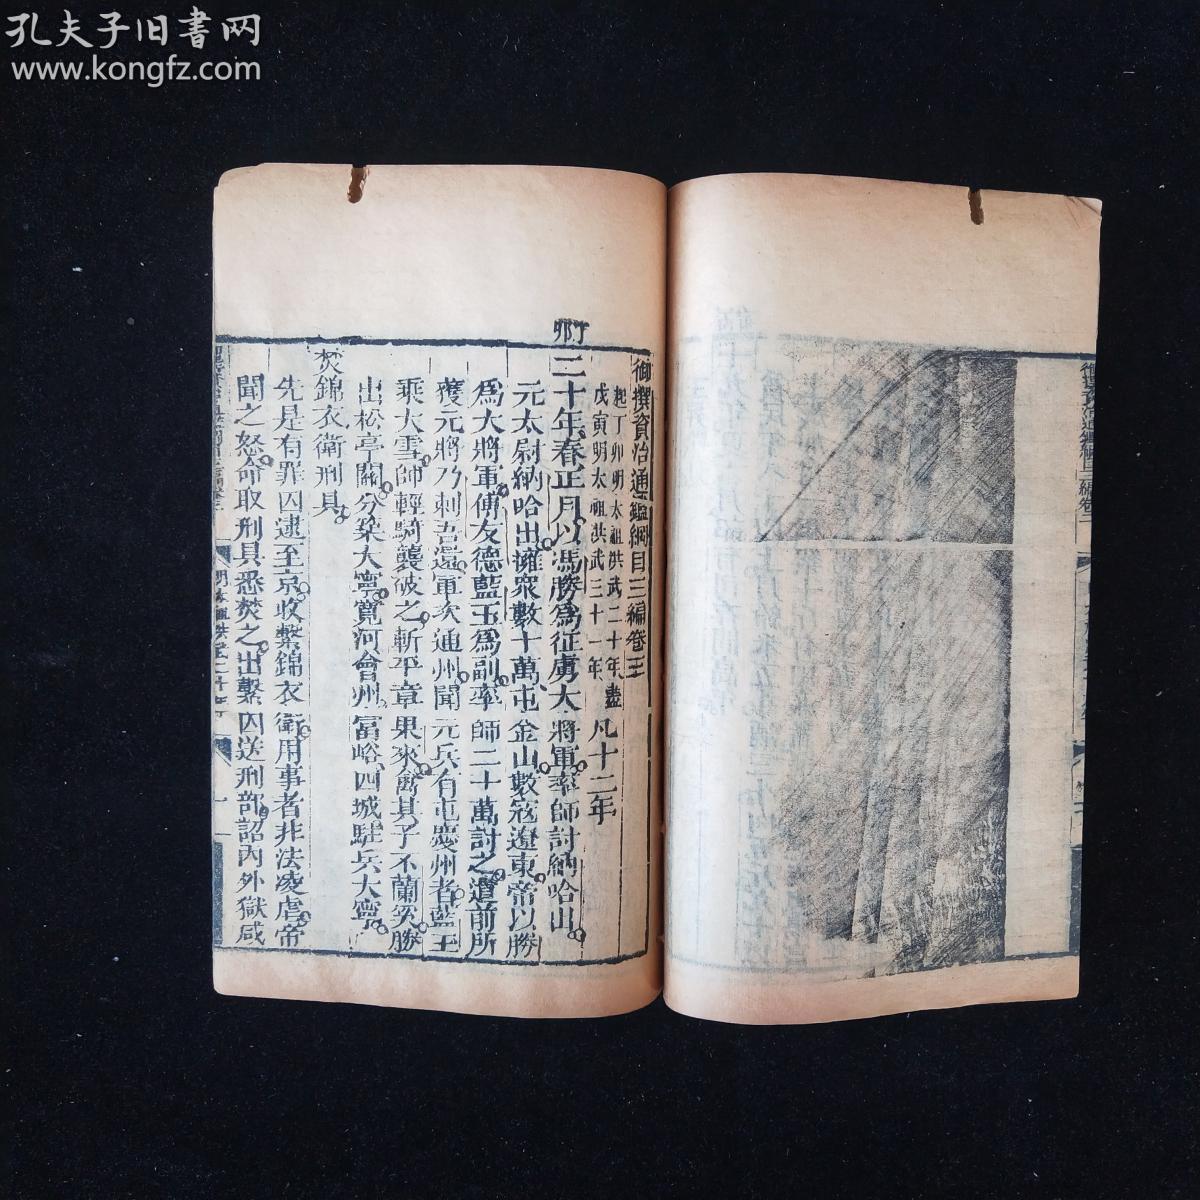 孔夫子旧書网
www.kongfz.com
御撰資治通鑑綱目三編卷三
起丁卯明太祖洪武二十年盡
戊寅明太祖洪武三十一年
凡十二年
丁卯
二十年春正月以馮勝爲征虜大將軍率師討納哈出
元太尉納哈出擁衆數十萬屯金山數寇遼東帝以勝
爲大將軍傅友德藍玉爲副率師二十萬討之遣前所
獲元將乃剌吾還軍次通州聞元兵有屯慶州者藍玉
乘大雪師輕騎襲破之斬平章果來禽其子不蘭奚勝
出松亭關分築大寧寛河會州富峪四城駐兵大寧
焚錦衣衛刑具
先是有罪囚逮至京收繫錦衣衛用事者非法凌虐帝
聞之怒命取刑具悉焚之出繫囚送刑部詔內外獄咸
明太祖洪武二十年
一
御撰資治通鑑綱目三編卷二